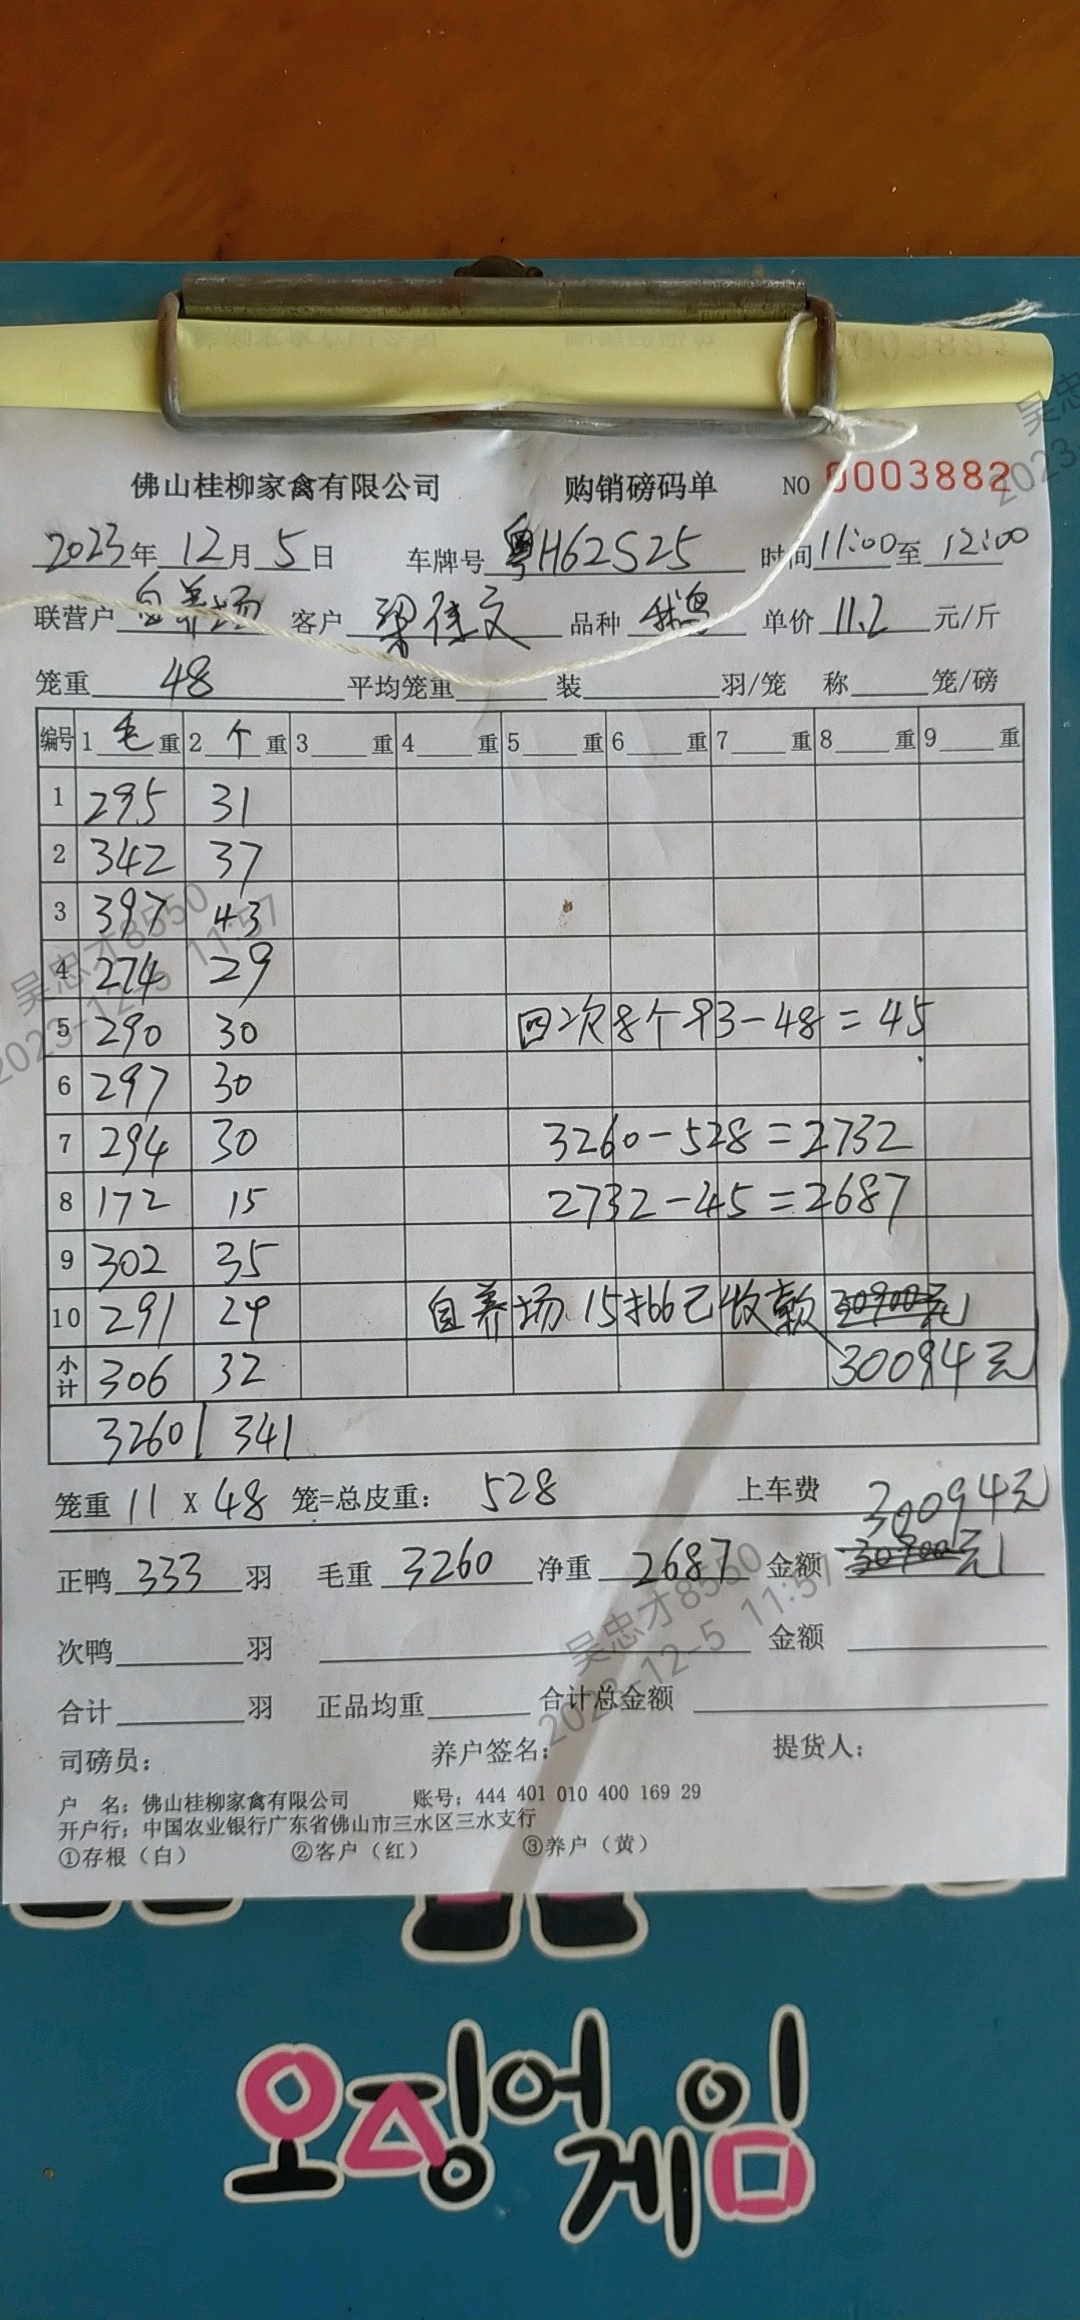 佛山桂柳家禽有限公司 购销磅码单 NO 0003882
2023年 12月 5日 车牌号 粤H62S25 时间 11:00 至 12:00
联营户 自养场 客户 梁佳文 品种 鹅 单价 11.2 元/斤
笼重 48 平均笼重 装 羽/笼 称 笼/磅
编号 1 毛 重 2 个 重 3 重 4 重 5 重 6 重 7 重 8 重 9 重
1 295 31
2 342 37
3 397 43
4 274 29
5 290 30 四次8个 93-48=45
6 297 30
7 294 30 3260-528=2732
8 172 15 2732-45=2687
9 302 35
10 291 29 自养场 15批 已收款 30900元
小计 306 32 30094元
3260 341
笼重 11 X 48 笼=总皮重: 528 上车费
30094元
正鸭 333 羽 毛重 3260 净重 2687 金额 30900元
次鸭 羽 金额
合计 羽 正品均重 合计总金额
司磅员: 养户签名: 提货人:
户 名: 佛山桂柳家禽有限公司 账号: 444 401 010 400 169 29
开户行: 中国农业银行广东省佛山市三水区三水支行
①存根（白） ②客户（红） ③养户（黄）
吴忠才8550
2023-12-5 11:57
吴忠才8550
2023-12-5 11:57
吴忠
2023
오징어
게임